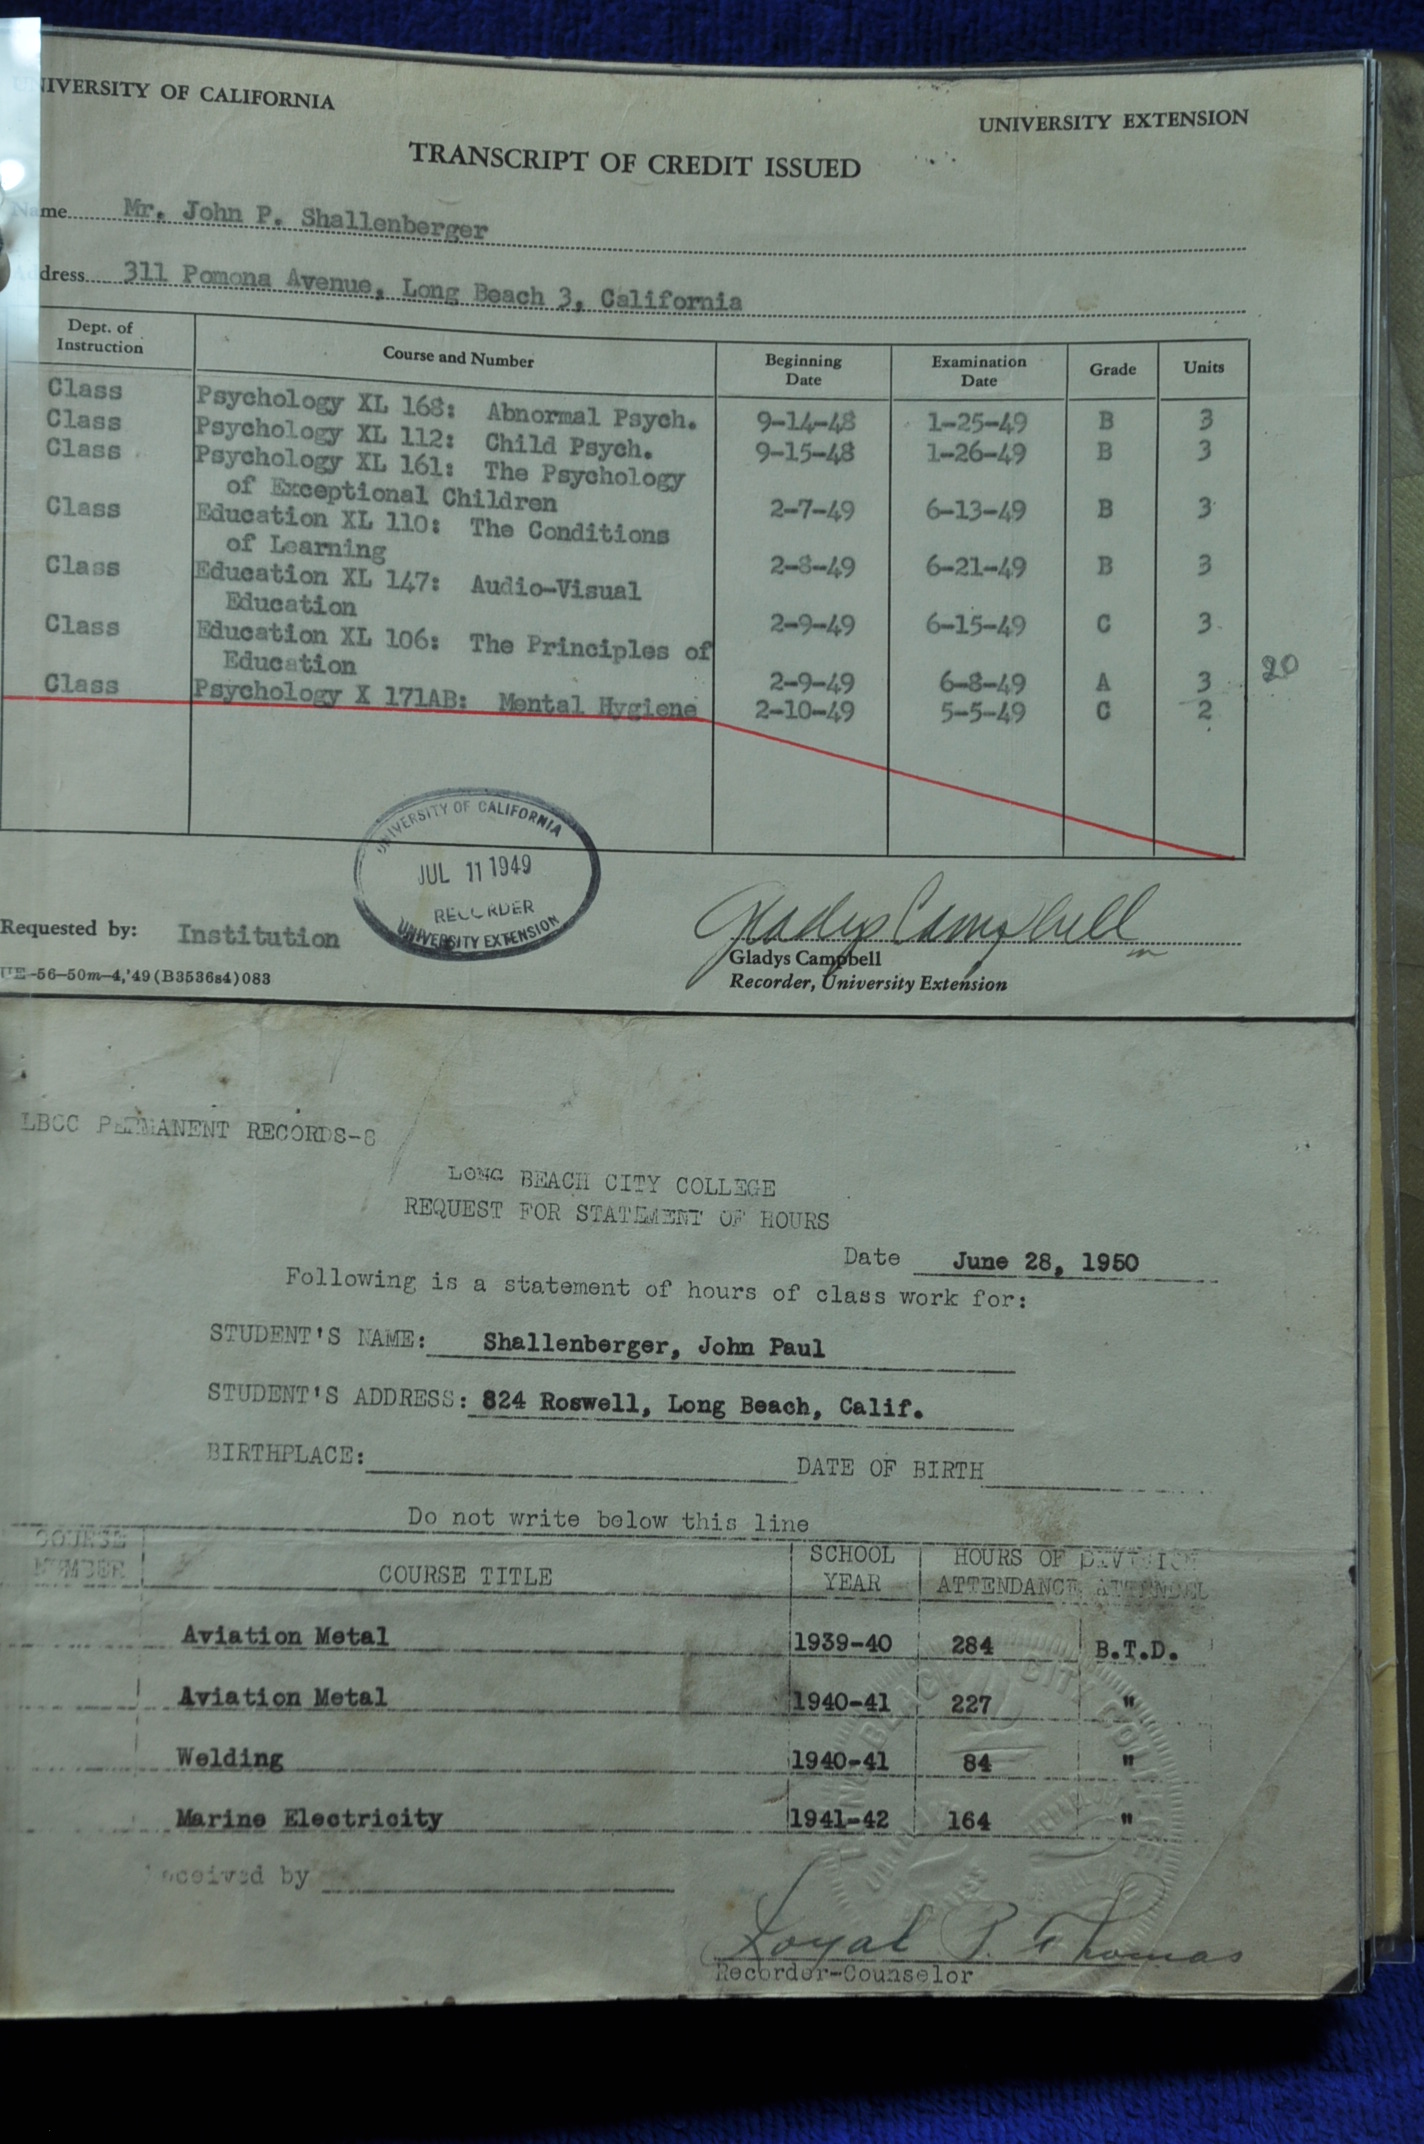 UNIVERSITY OF CALIFORNIA
UNIVERSITY EXTENSION
TRANSCRIPT OF CREDIT ISSUED
Name Mr. John P. Shallenberger
Address 311 Pomona Avenue, Long Beach 3, California
Dept. of Instruction Course and Number Beginning Date Examination Date Grade Units
Class Psychology XL 168: Abnormal Psych. 9-14-48 1-25-49 B 3
Class Psychology XL 112: Child Psych. 9-15-48 1-26-49 B 3
Class Psychology XL 161: The Psychology
of Exceptional Children 2-7-49 6-13-49 B 3
Class Education XL 110: The Conditions
of Learning 2-8-49 6-21-49 B 3
Class Education XL 147: Audio-Visual
Education 2-9-49 6-15-49 C 3
Class Education XL 106: The Principles of
Education 2-9-49 6-8-49 A 3
20
Class Psychology X 171AB: Mental Hygiene 2-10-49 5-5-49 C 2
UNIVERSITY OF CALIFORNIA
JUL 11 1949
RECORDER
UNIVERSITY EXTENSION
Gladys Campbell
Requested by: Institution
Gladys Campbell
Recorder, University Extension
UE-56-50m-4,'49(B3536s4)083
LBCC PERMANENT RECORDS-8
LONG BEACH CITY COLLEGE
REQUEST FOR STATEMENT OF HOURS
Date June 28, 1950
Following is a statement of hours of class work for:
STUDENT'S NAME: Shallenberger, John Paul
STUDENT'S ADDRESS: 824 Roswell, Long Beach, Calif.
BIRTHPLACE: DATE OF BIRTH
Do not write below this line
COURSE NUMBER COURSE TITLE SCHOOL YEAR HOURS OF ATTENDANCE DIVISION ATTENDED
Aviation Metal 1939-40 284 B.T.D.
Aviation Metal 1940-41 227 "
Welding 1940-41 84 "
Marine Electricity 1941-42 164 "
LONG BEACH CITY COLLEGE
Received by
Loyal P. Thomas
Recorder-Counselor